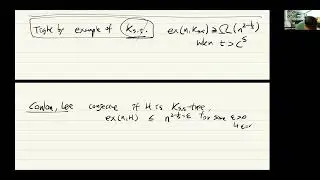 Tight by example of K_{s,t}. ex(n, K_{s,t}) ≥ Ω(n^{2-1/s})
when t > c^s
Conlon, Lee conjecture if H is K_{s,s}-free,
ex(n,H) ≤ n^{2-1/s-ε} for some ε>0